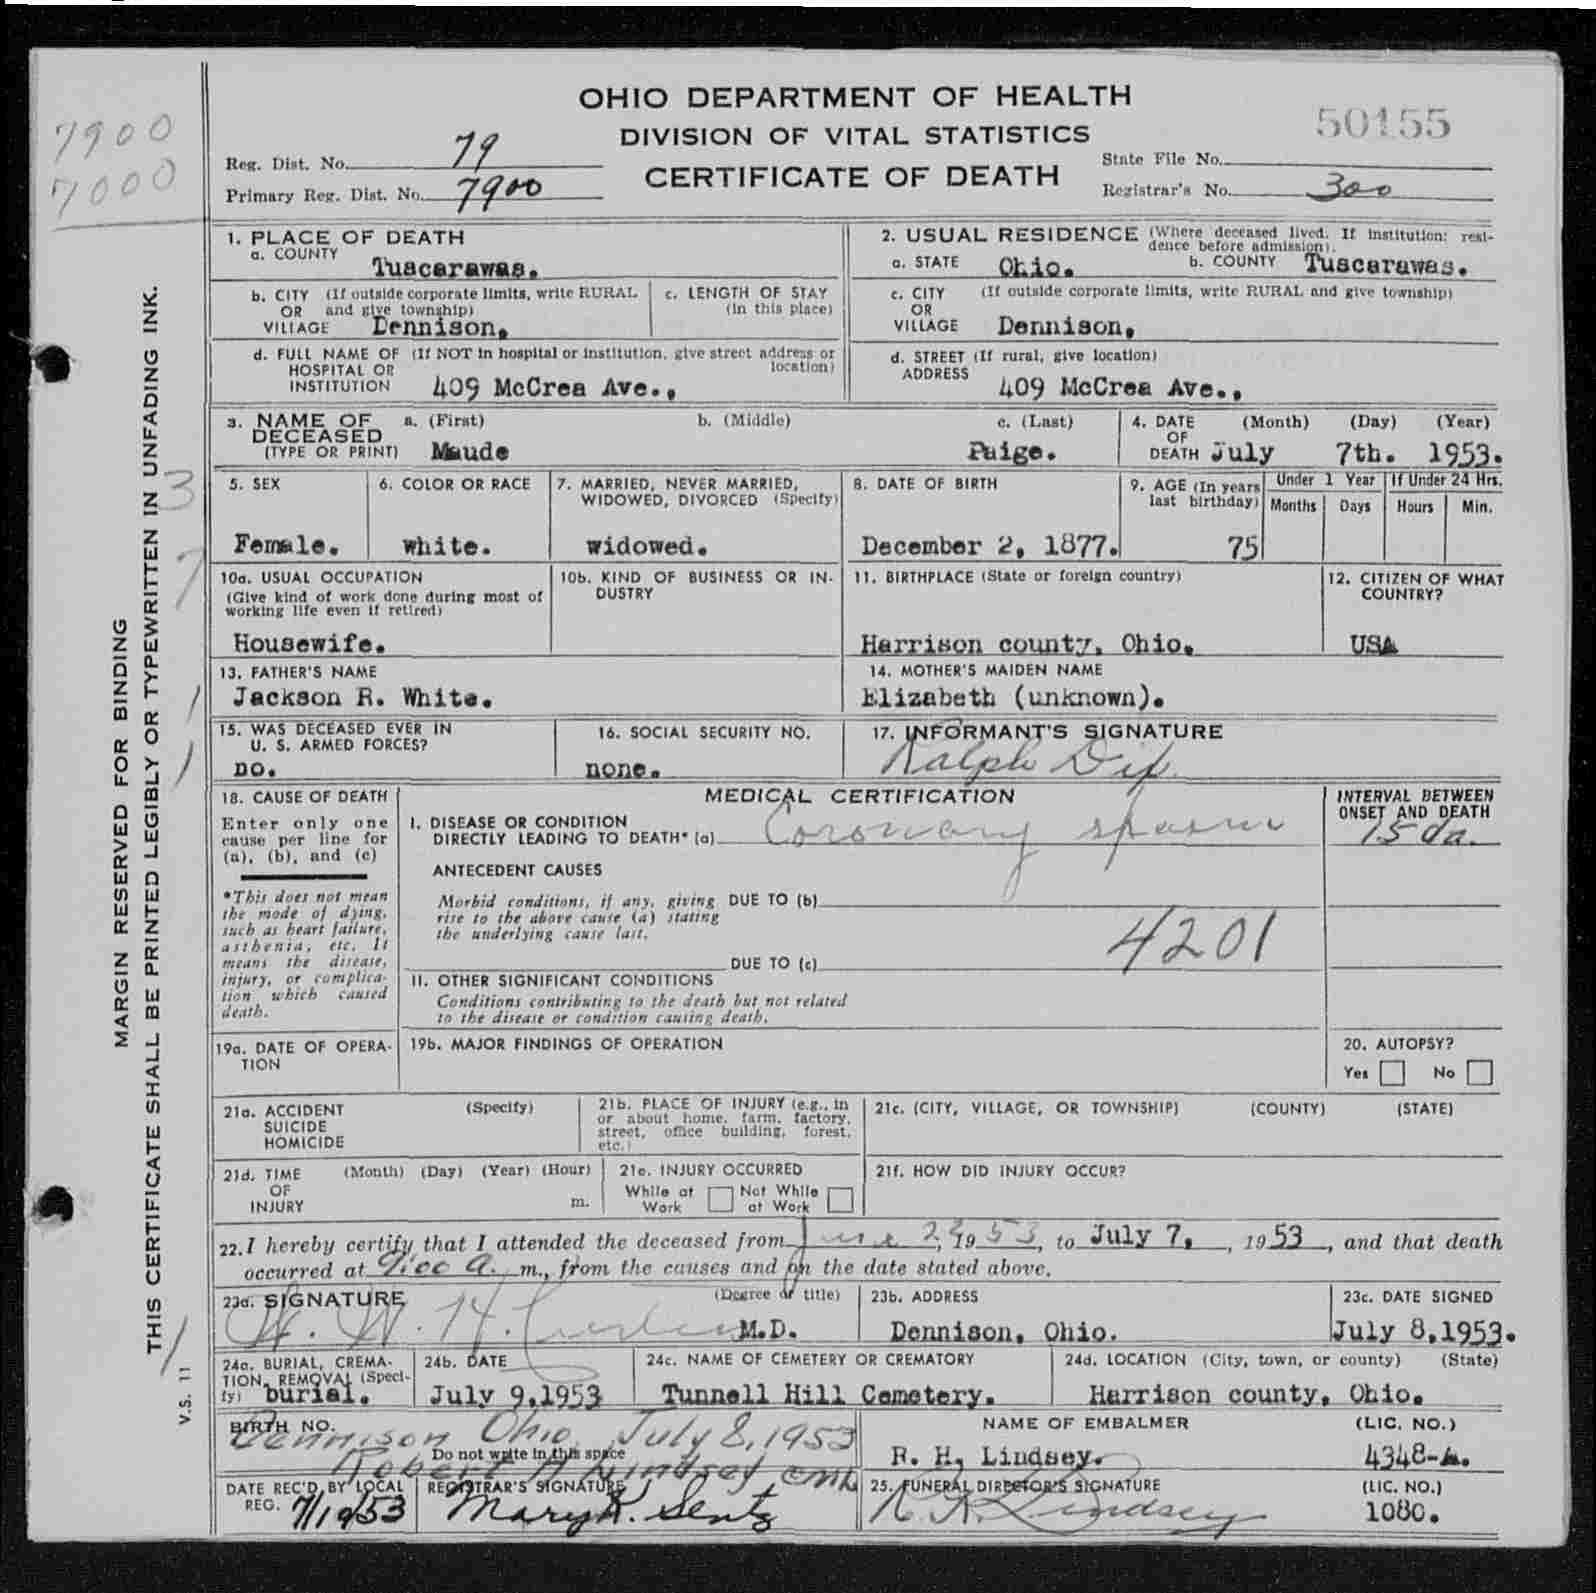 7900
7000
OHIO DEPARTMENT OF HEALTH
DIVISION OF VITAL STATISTICS
CERTIFICATE OF DEATH
50155
Reg. Dist. No. 79
Primary Reg. Dist. No. 7900
State File No.
Registrar's No. 300
1. PLACE OF DEATH
a. COUNTY
Tuscarawas.
2. USUAL RESIDENCE (Where deceased lived. If institution: resi-
dence before admission).
a. STATE Ohio. b. COUNTY Tuscarawas.
b. CITY (If outside corporate limits, write RURAL
OR and give township)
VILLAGE Dennison,
c. LENGTH OF STAY
(in this place)
c. CITY (If outside corporate limits, write RURAL and give township)
OR
VILLAGE Dennison,
d. FULL NAME OF (If NOT in hospital or institution, give street address or
HOSPITAL OR location)
INSTITUTION 409 McCrea Ave.,
d. STREET (If rural, give location)
ADDRESS 409 McCrea Ave.,
3. NAME OF a. (First) b. (Middle) c. (Last)
DECEASED
(TYPE OR PRINT) Maude Paige.
4. DATE (Month) (Day) (Year)
OF
DEATH July 7th. 1953.
5. SEX
Female.
6. COLOR OR RACE
white.
7. MARRIED, NEVER MARRIED,
WIDOWED, DIVORCED (Specify)
widowed.
8. DATE OF BIRTH
December 2, 1877.
9. AGE (In years
last birthday)
75
Under 1 Year
Months Days
If Under 24 Hrs.
Hours Min.
10a. USUAL OCCUPATION
(Give kind of work done during most of
working life even if retired)
Housewife.
10b. KIND OF BUSINESS OR IN-
DUSTRY
11. BIRTHPLACE (State or foreign country)
Harrison county, Ohio.
12. CITIZEN OF WHAT
COUNTRY?
USA
13. FATHER'S NAME
Jackson R. White.
14. MOTHER'S MAIDEN NAME
Elizabeth (unknown).
15. WAS DECEASED EVER IN
U. S. ARMED FORCES?
no.
16. SOCIAL SECURITY NO.
none.
17. INFORMANT'S SIGNATURE
Ralph
18. CAUSE OF DEATH
Enter only one
cause per line for
(a), (b), and (c)
*This does not mean
the mode of dying,
such as heart failure,
asthenia, etc. It
means the disease,
injury, or complica-
tion which caused
death.
MEDICAL CERTIFICATION
I. DISEASE OR CONDITION
DIRECTLY LEADING TO DEATH* (a) Coronary spasm
ANTECEDENT CAUSES
Morbid conditions, if any, giving DUE TO (b)
rise to the above cause (a) stating
the underlying cause last.
DUE TO (c)
4201
II. OTHER SIGNIFICANT CONDITIONS
Conditions contributing to the death but not related
to the disease or condition causing death.
INTERVAL BETWEEN
ONSET AND DEATH
15 da.
19a. DATE OF OPERA-
TION
19b. MAJOR FINDINGS OF OPERATION
20. AUTOPSY?
Yes No
21a. ACCIDENT (Specify)
SUICIDE
HOMICIDE
21b. PLACE OF INJURY (e.g., in
or about home, farm, factory,
street, office building, forest,
etc.)
21c. (CITY, VILLAGE, OR TOWNSHIP) (COUNTY) (STATE)
21d. TIME (Month) (Day) (Year) (Hour)
OF
INJURY m.
21e. INJURY OCCURRED
While at Work Not While at Work
21f. HOW DID INJURY OCCUR?
22. I hereby certify that I attended the deceased from June 23, 1953, to July 7, , 1953, and that death
occurred at 9:00 a. m., from the causes and on the date stated above.
23a. SIGNATURE (Degree or title)
M.D.
23b. ADDRESS
Dennison, Ohio.
23c. DATE SIGNED
July 8,1953.
24a. BURIAL, CREMA-
TION, REMOVAL (Speci-
fy) burial.
24b. DATE
July 9,1953
24c. NAME OF CEMETERY OR CREMATORY
Tunnell Hill Cemetery.
24d. LOCATION (City, town, or county) (State)
Harrison county, Ohio.
BIRTH NO.
Dennison Ohio, July 8, 1953
Do not write in this space
Robert H Lindsey
NAME OF EMBALMER (LIC. NO.)
R. H. Lindsey. 4348-A.
DATE REC'D BY LOCAL
REG. 7/10/53
REGISTRAR'S SIGNATURE
Mary K. Sentz
25. FUNERAL DIRECTOR'S SIGNATURE (LIC. NO.)
R H Lindsey 1080.
MARGIN RESERVED FOR BINDING
THIS CERTIFICATE SHALL BE PRINTED LEGIBLY OR TYPEWRITTEN IN UNFADING INK.
V.S. 11
3
7
1
1
1